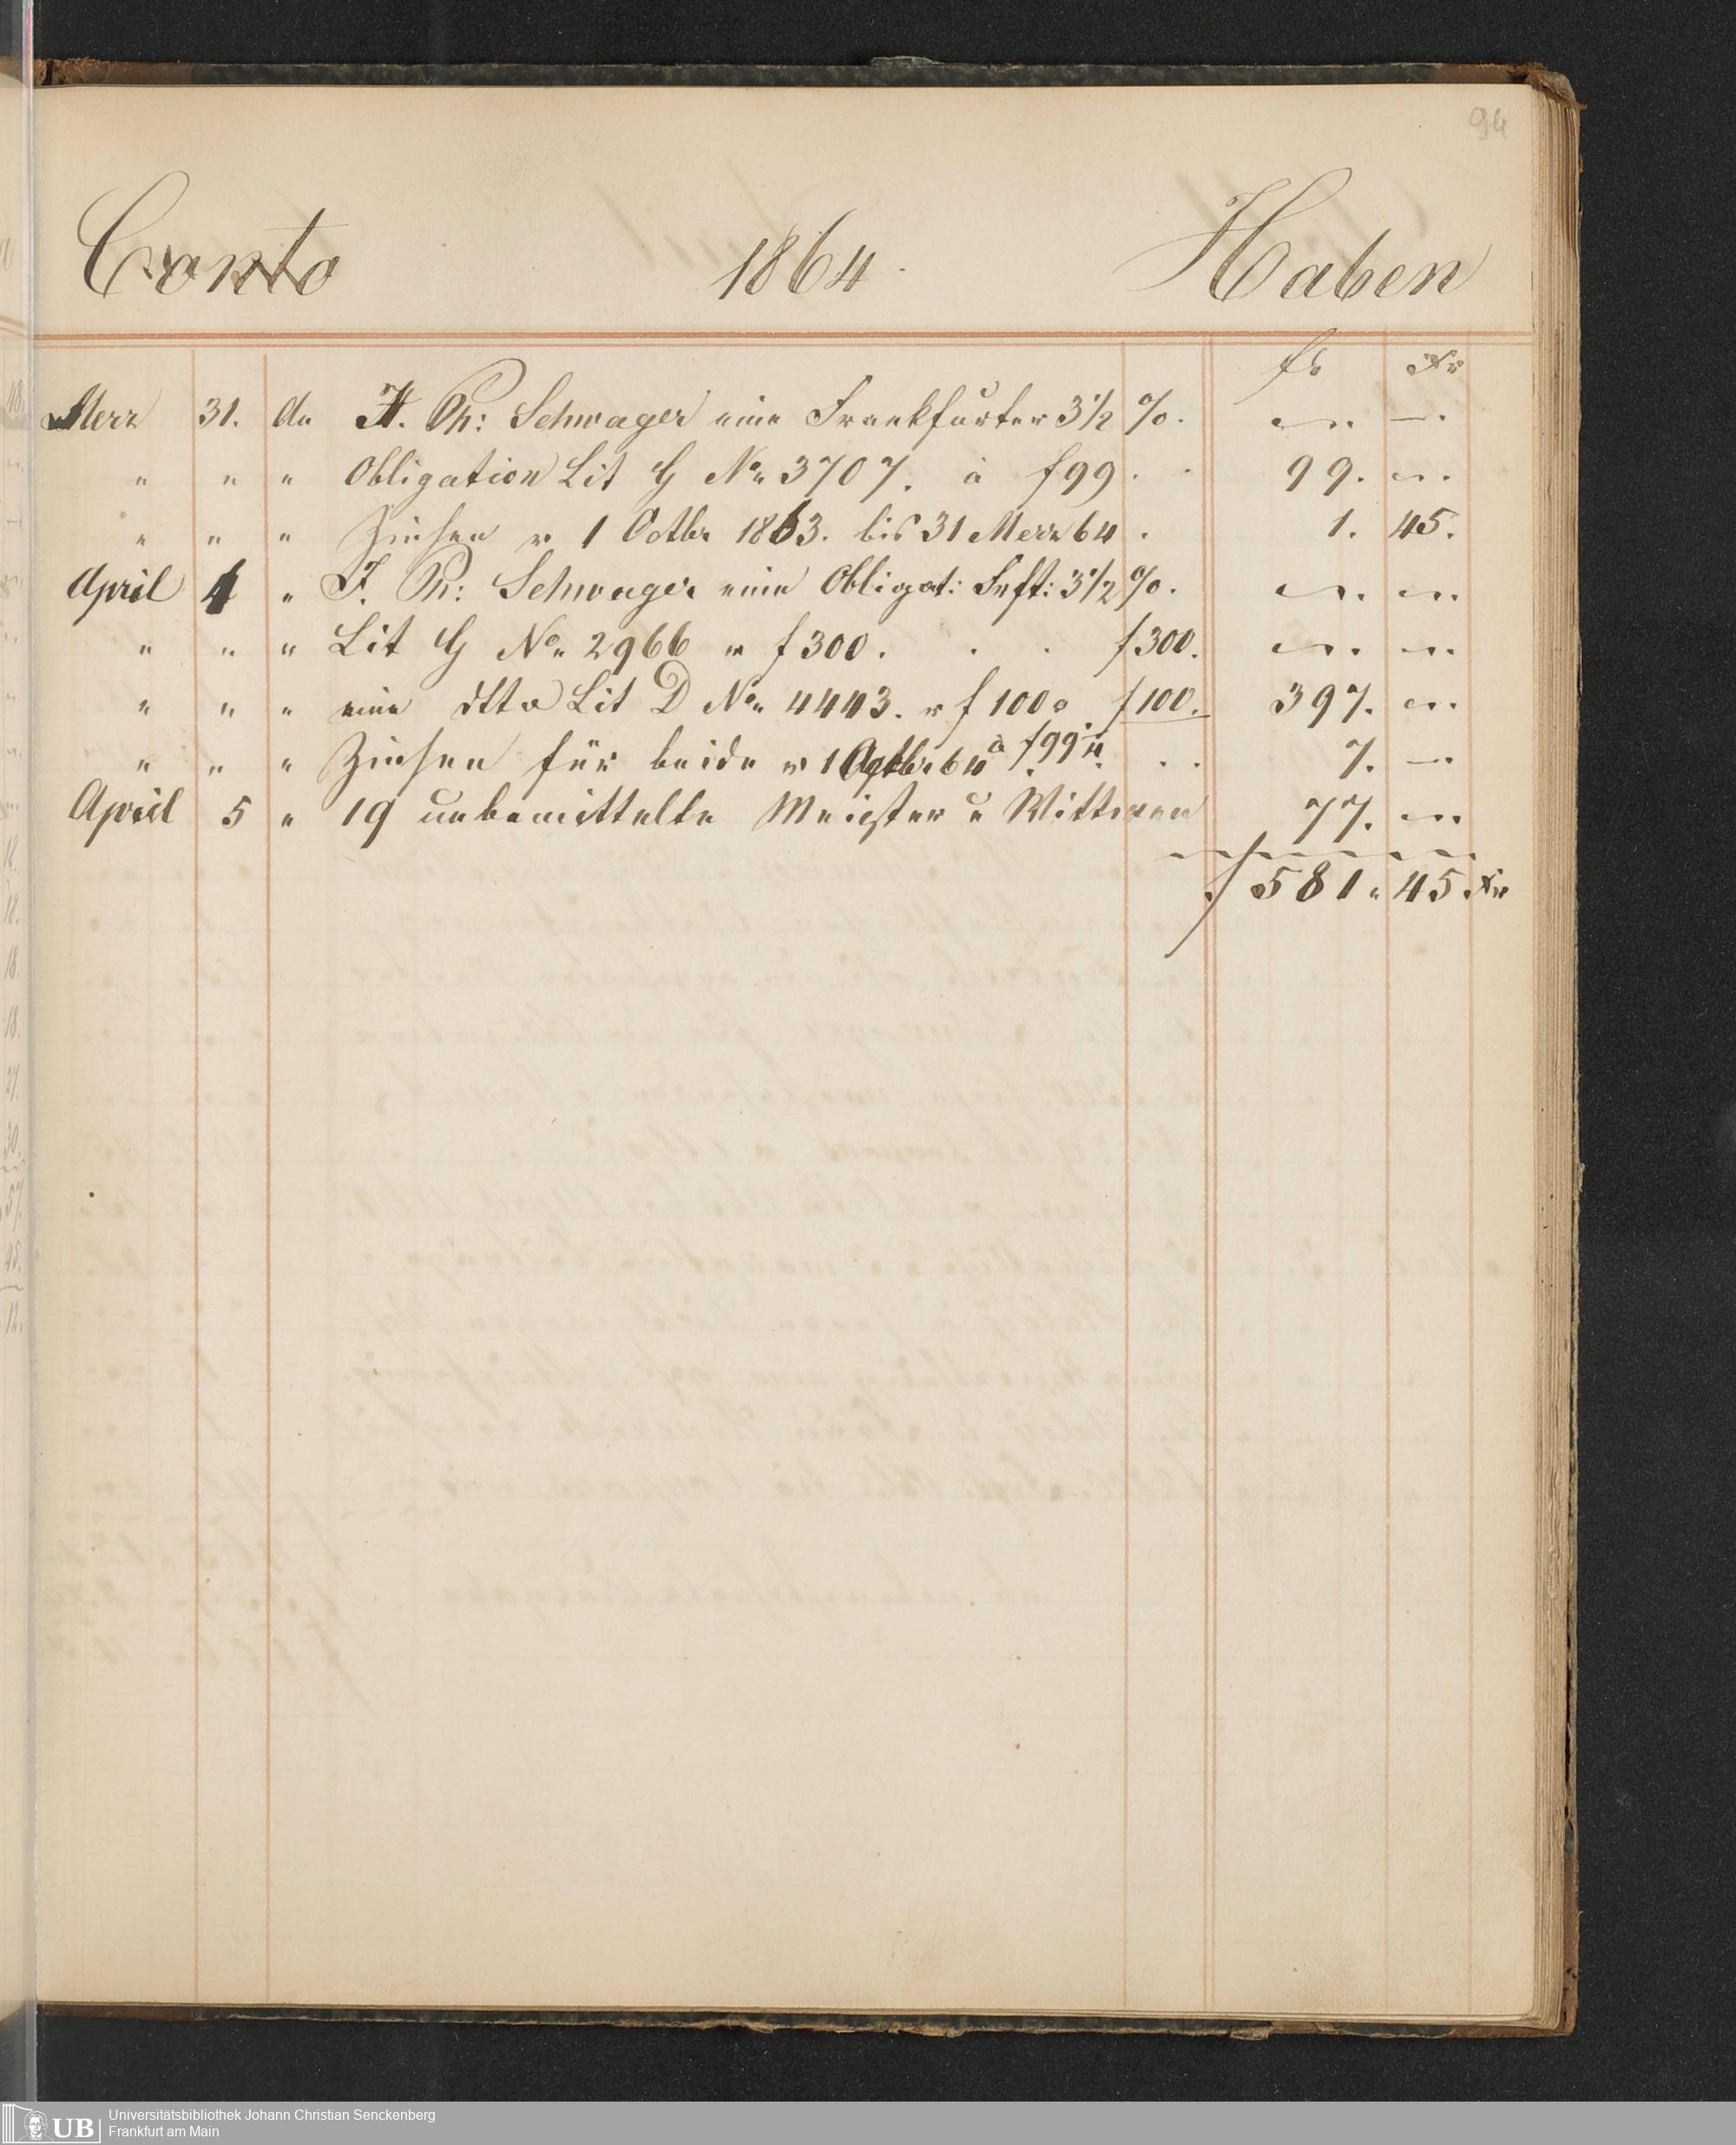 94
Conto 1864. Haben
fl. Xr
Merz 31. An H. Ph: Schwager eine Frankfurter 3½ %. —.. —.
" " " Obligation Lit G No. 3707. à f 99 . . 99. —..
" " " Zinsen v 1 Octbr 1863. bis 31 Merz 64 . 1. 45.
April 4 " J. Ph: Schwager eine Obligat: Frft: 3½ %. —. —..
" " " Lit G No. 2966 v f 300 . . . f 300. —.. —..
" " " eine dtto Lit D No. 4443. v f 100. f 100. 397. —..
" " " Zinsen für beide v 1 64 à f 99¼. . . 7. —.
April 5 " 19 unbemittelte Meister u Wittwen 77. —..
f 581. 45. Xr
UB Universitätsbibliothek Johann Christian Senckenberg
Frankfurt am Main